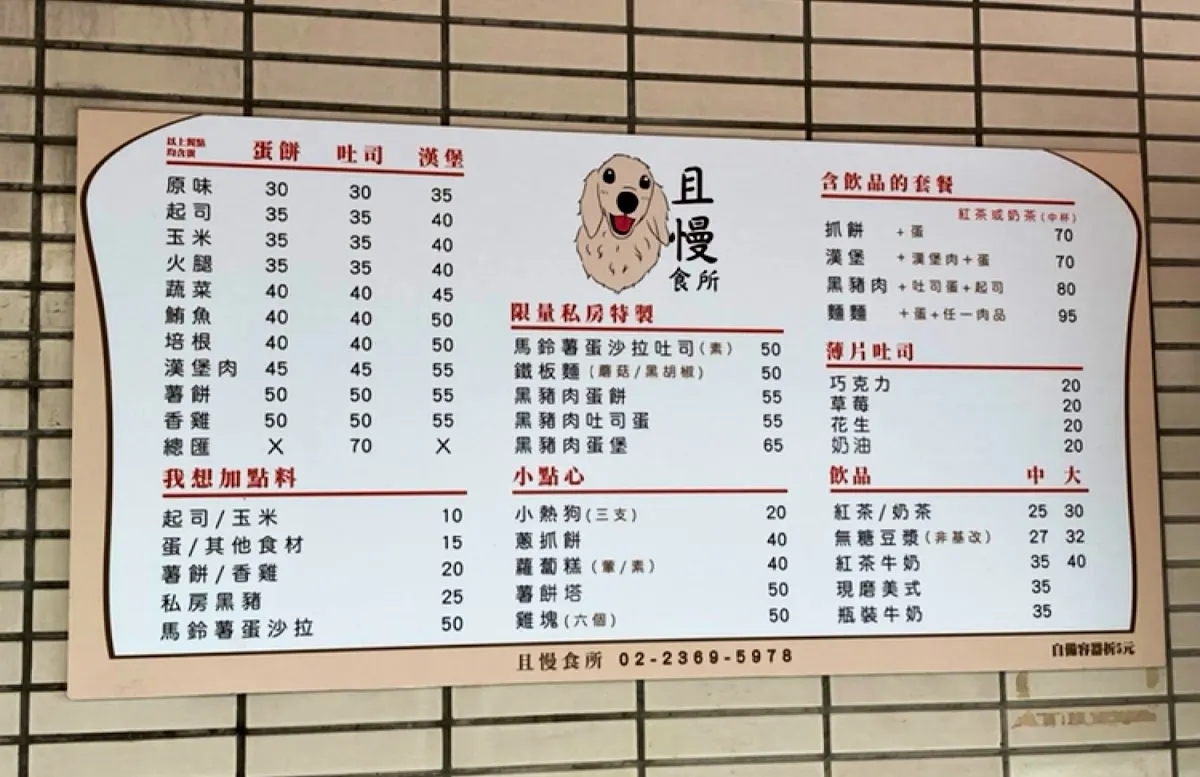 以上餐點
均含蛋
蛋餅 吐司 漢堡
原味 30 30 35
起司 35 35 40
玉米 35 35 40
火腿 35 35 40
蔬菜 40 40 45
鮪魚 40 40 50
培根 40 40 50
漢堡肉 45 45 55
薯餅 50 50 55
香雞 50 50 55
總匯 X 70 X
我想加點料
起司/玉米 10
蛋/其他食材 15
薯餅/香雞 20
私房黑豬 25
馬鈴薯蛋沙拉 50
且慢
食所
限量私房特製
馬鈴薯蛋沙拉吐司(素) 50
鐵板麵(蘑菇/黑胡椒) 50
黑豬肉蛋餅 55
黑豬肉吐司蛋 55
黑豬肉蛋堡 65
小點心
小熱狗(三支) 20
蔥抓餅 40
蘿蔔糕(葷/素) 40
薯餅塔 50
雞塊(六個) 50
含飲品的套餐
紅茶或奶茶(中杯)
抓餅 +蛋 70
漢堡 +漢堡肉+蛋 70
黑豬肉 +吐司蛋+起司 80
麵麵 +蛋+任一肉品 95
薄片吐司
巧克力 20
草莓 20
花生 20
奶油 20
飲品 中 大
紅茶/奶茶 25 30
無糖豆漿(非基改) 27 32
紅茶牛奶 35 40
現磨美式 35
瓶裝牛奶 35
且慢食所 02-2369-5978
自備容器折5元